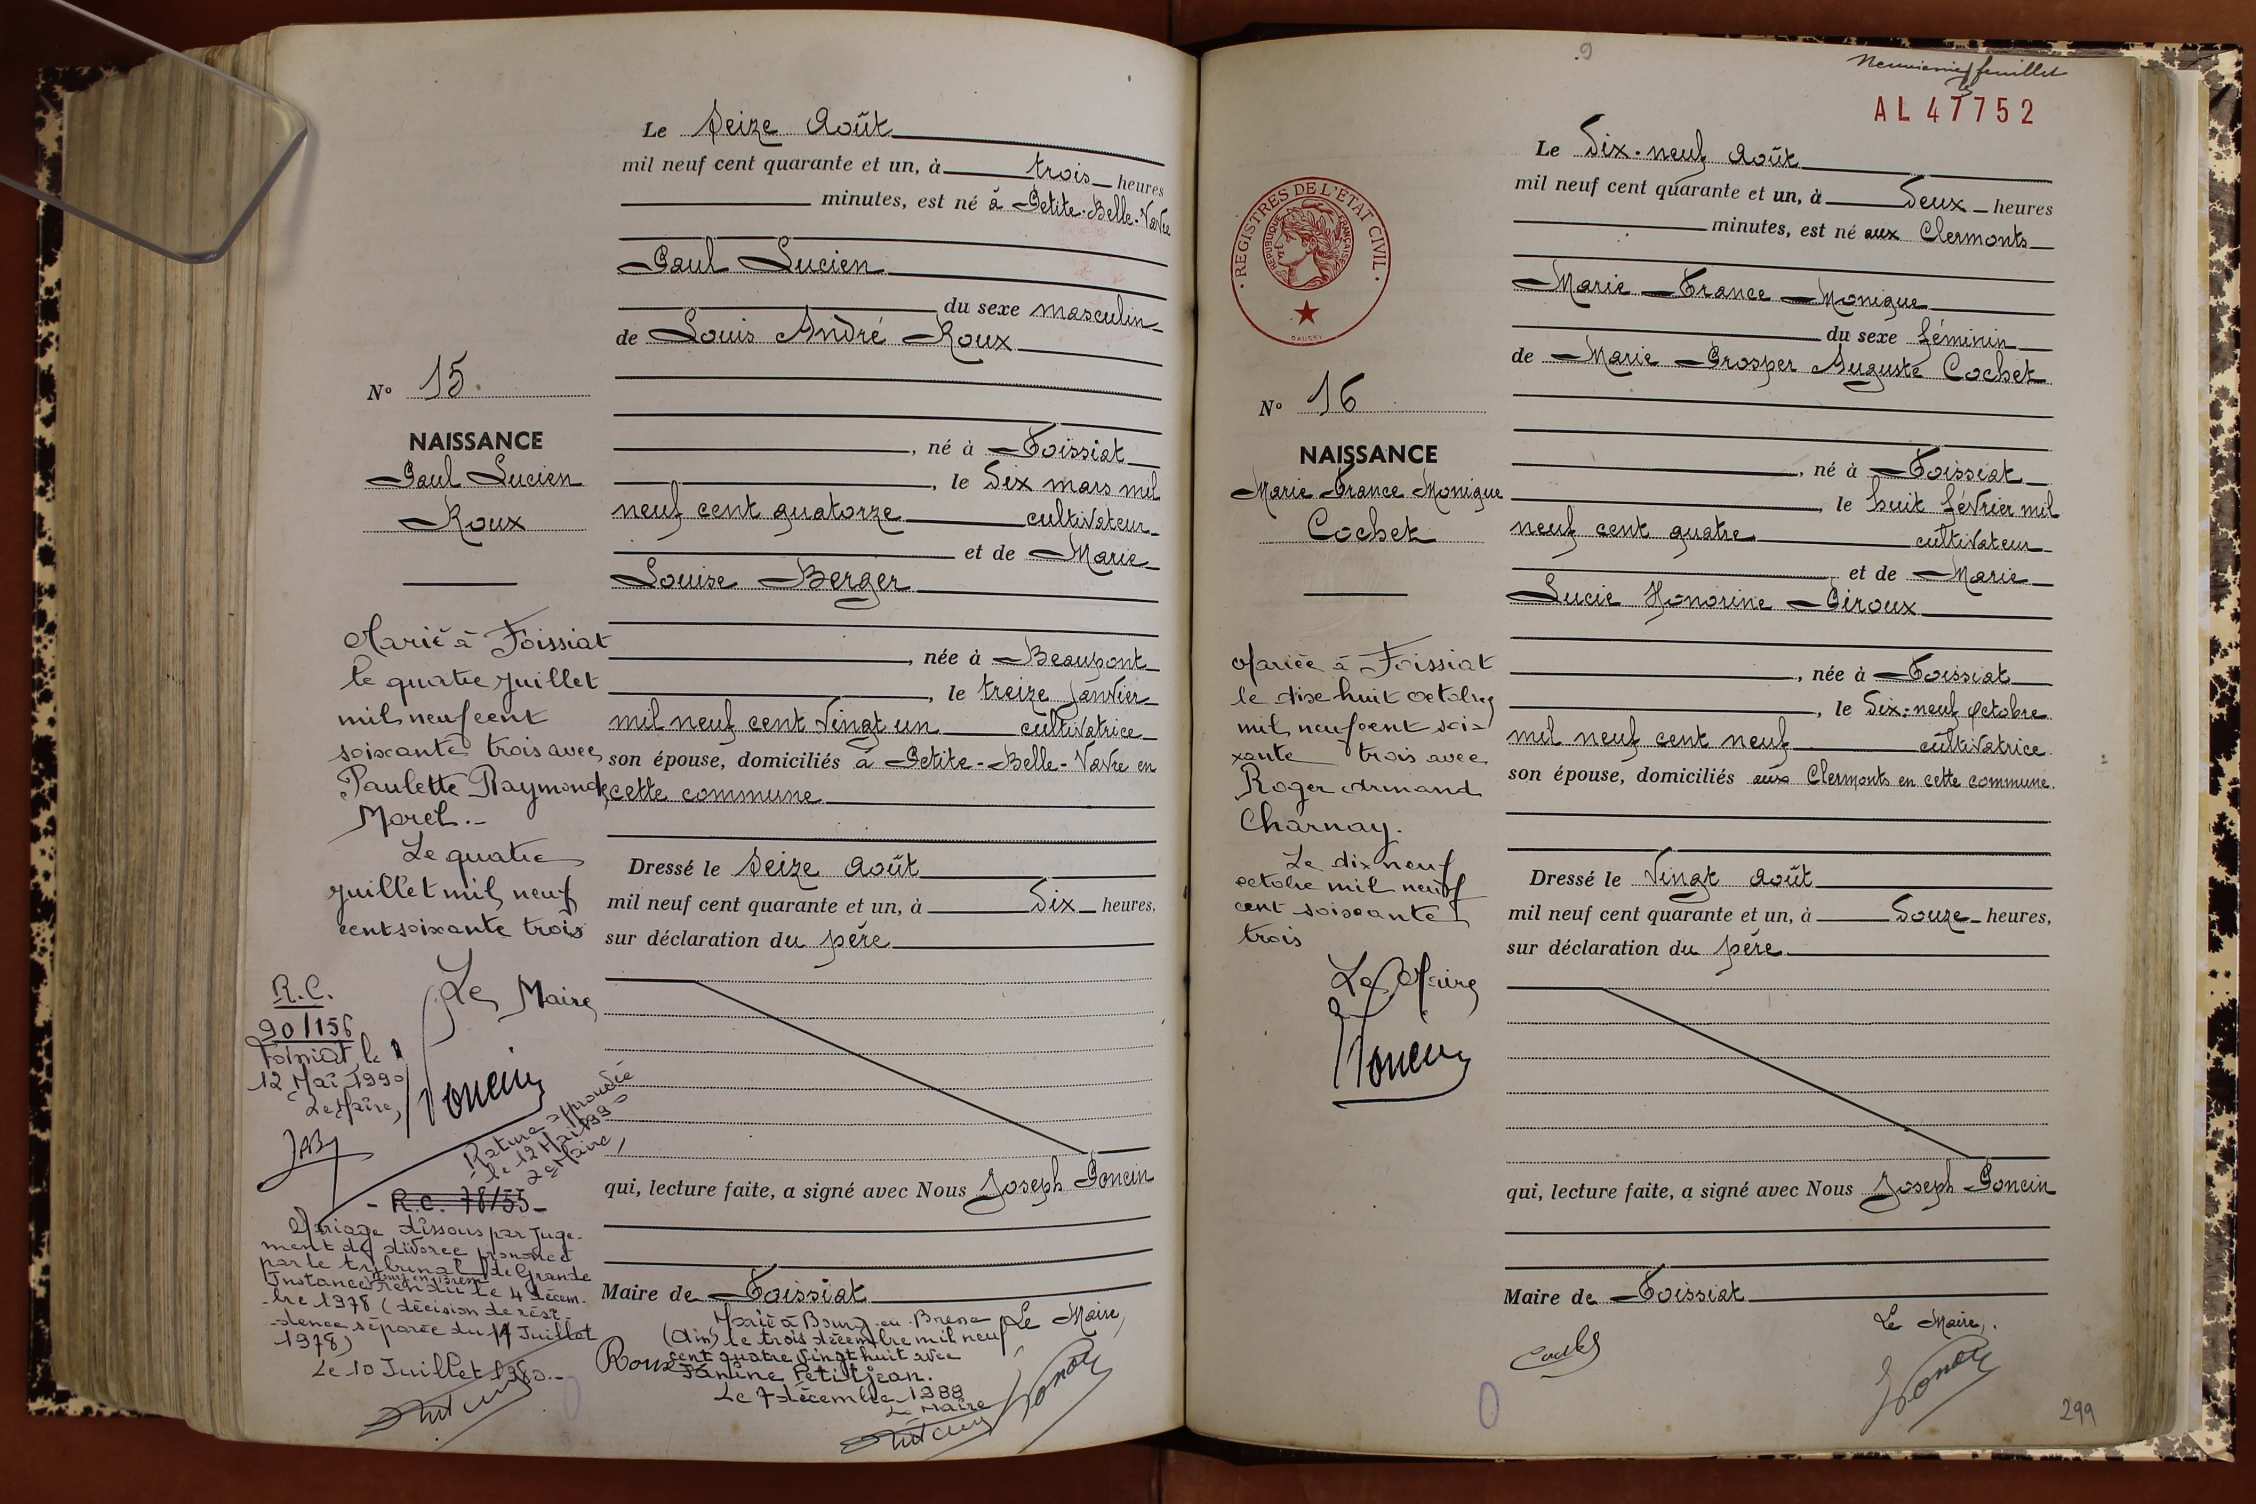 Le Seize Août
mil neuf cent quarante et un, à trois heures
minutes, est né à Petite-Belle-Vavre
Paul Lucien
du sexe masculin
de Louis André Roux
né à Foissiat
, le Dix mars mil
neuf cent quatorze cultivateur
et de Marie
Louise Berger
, née à Beaupont
, le treize Janvier
mil neuf cent vingt un cultivatrice
son épouse, domiciliés à Petite-Belle-Vavre en
cette commune
Dressé le Seize Août
mil neuf cent quarante et un, à Dix heures,
sur déclaration du père
qui, lecture faite, a signé avec Nous Joseph Poncin
Maire de Foissiat
Le Maire,
Roux
Marié à Bourg-en-Bresse
(Ain) le trois décembre mil neuf
cent quatre vingt huit avec
Janine Petitjean.
Le 7 décembre 1988
Le Maire
N° 15
NAISSANCE
Paul Lucien
Roux
Marié à Foissiat
le quatre juillet
mil neuf cent
soixante trois avec
Paulette Raymonde
Morel.-
Le quatre
juillet mil neuf
cent soixante trois
Le Maire
Poncin
R.C.
90/156
Foissiat, le
12 Mai 1990
Le Maire,
Rature approuvée
le 12 Mai 1990
Le Maire,
- R.C. 78/55 -
Mariage dissous par Juge-
ment de divorce prononcé
par le tribunal de Grande
Instance Bourg en Bresse rendu le 4 décem-
-bre 1978 (décision de rési-
-dence séparée du 11 Juillet
1978)
Le 10 Juillet 1980.-
9
Neuvième feuillet
AL 47752
REGISTRES DE L'ÉTAT CIVIL
RÉPUBLIQUE FRANÇAISE
Le Dix-neuf Août
mil neuf cent quarante et un, à Deux heures
minutes, est né aux Clermonts
Marie France Monique
du sexe féminin
de Marie Prosper Auguste Cochet
, né à Foissiat
, le huit février mil
neuf cent quatre cultivateur
et de Marie
Lucie Honorine Piroux
, née à Foissiat
, le Dix-neuf Octobre
mil neuf cent neuf cultivatrice
son épouse, domiciliés aux Clermonts en cette commune.
Dressé le Vingt Août
mil neuf cent quarante et un, à Douze heures,
sur déclaration du père
qui, lecture faite, a signé avec Nous Joseph Poncin
Maire de Foissiat
Le Maire,
Cochet
N° 16
NAISSANCE
Marie France Monique
Cochet
Mariée à Foissiat
le dix huit octobre
mil neuf cent soi-
xante trois avec
Roger Armand
Charnay.
Le dix neuf
octobre mil neuf
cent soixante
trois
Le Maire
Poncin
299